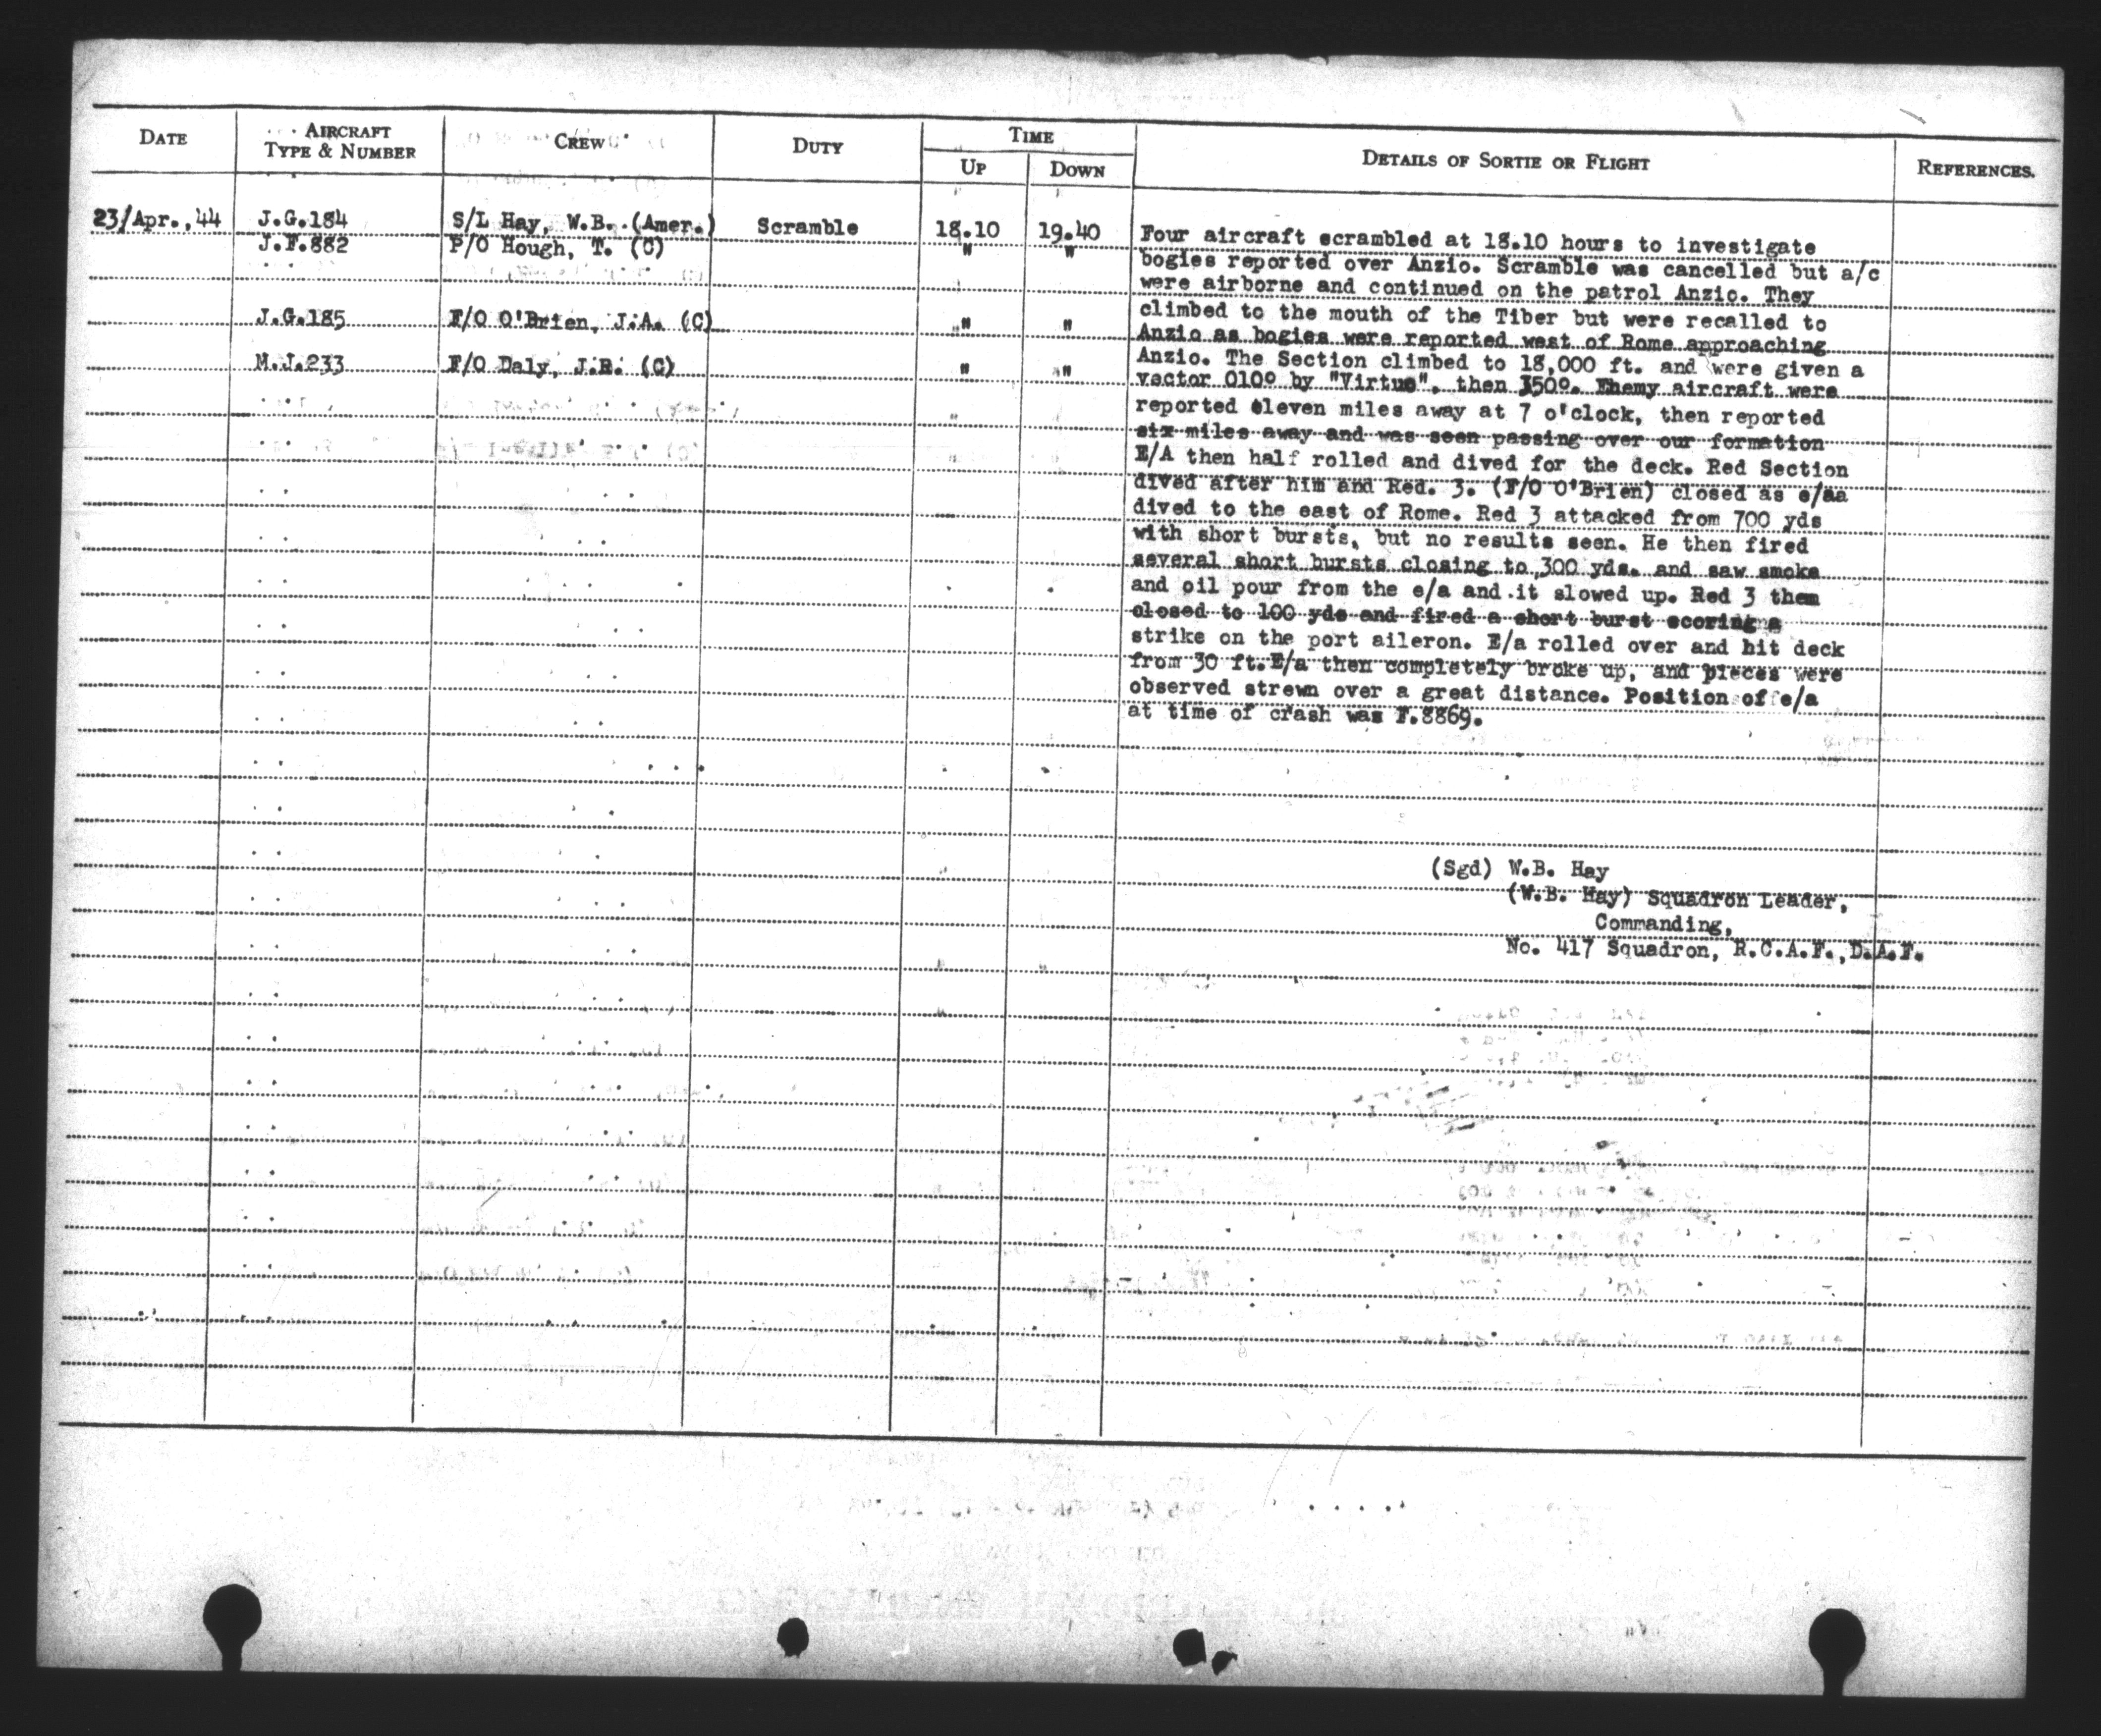 DATE AIRCRAFT TYPE & NUMBER CREW DUTY TIME UP DOWN DETAILS OF SORTIE OR FLIGHT REFERENCES.
23/Apr.,44 J.G.184 S/L Hay, W.B. (Amer.) Scramble 18.10 19.40 Four aircraft scrambled at 18.10 hours to investigate
J.F.882 P/O Hough, T. (C) " " bogies reported over Anzio. Scramble was cancelled but a/c
were airborne and continued on the patrol Anzio. They
J.G.185 F/O O'Brien, J.A. (C) " " climbed to the mouth of the Tiber but were recalled to
Anzio as bogies were reported west of Rome approaching
M.J.233 F/O Daly, J.R. (C) " " Anzio. The Section climbed to 18,000 ft. and were given a
vector 010º by "Virtue", then 350º. Enemy aircraft were
reported eleven miles away at 7 o'clock, then reported
six miles away and was seen passing over our formation
E/A then half rolled and dived for the deck. Red Section
dived after him and Red. 3. (F/O O'Brien) closed as e/aa
dived to the east of Rome. Red 3 attacked from 700 yds
with short bursts, but no results seen. He then fired
several short bursts closing to 300 yds. and saw smoke
and oil pour from the e/a and it slowed up. Red 3 then
closed to 100 yds and fired a short burst scoring a
strike on the port aileron. E/a rolled over and hit deck
from 30 ft. E/a then completely broke up, and pieces were
observed strewn over a great distance. Position of e/a
at time of crash was F.8869.
(Sgd) W.B. Hay
(W.B. Hay) Squadron Leader,
Commanding,
No. 417 Squadron, R.C.A.F., D.A.F.